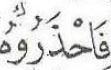 فَاحْذَرُوهُ